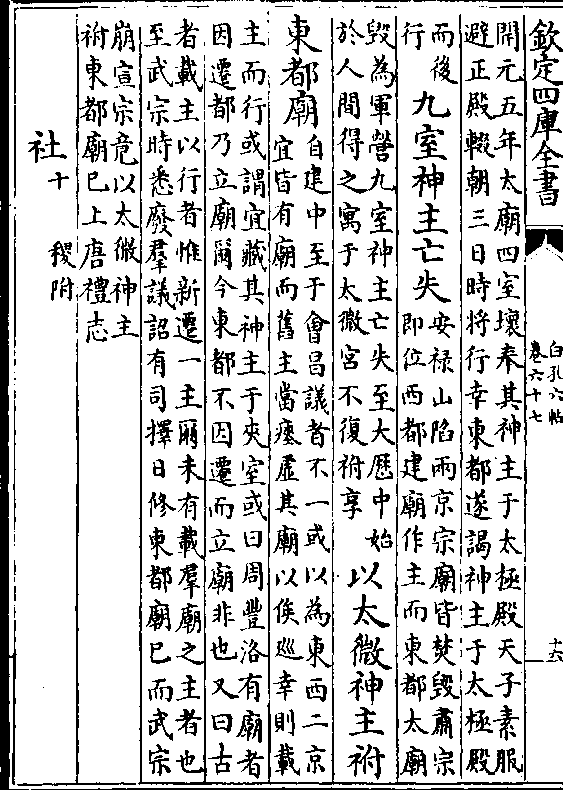 欽定四庫全書
白孔六帖
卷六十七
十六
開元五年太廟四室壞奉其神主于太極殿天子素服
避正殿輟朝三日時將行幸東都遂謁神主于太極殿
而後
行
九室神主亡失
安禄山陷兩京宗廟皆焚毁肅宗
即位西都建廟作主而東都太廟
毁為軍營九室神主亡失至大歴中始
於人間得之寓于太微宮不復祔享
以太微神主祔
東都廟
自建中至于會昌議者不一或以為東西二京
宜皆有廟而舊主當瘞虚其廟以俟廵幸則載
主而行或謂宜藏其神主于夾室或曰周豐洛有廟者
因遷都乃立廟爾今東都不因遷而立廟非也又曰古
者載主以行者惟新遷一主爾未有載羣廟之主者也
至武宗時悉廢羣議詔有司擇日修東都廟已而武宗
崩宣宗竟以太微神主
祔東都廟已上唐禮志
社十
稷附